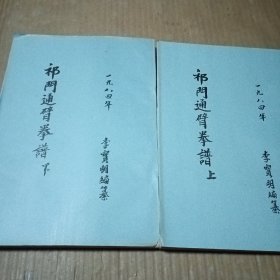 一九八四年
祁門通臂拳譜上
李寶明编纂
一九八四年
祁門通臂拳譜下
李寶明编纂